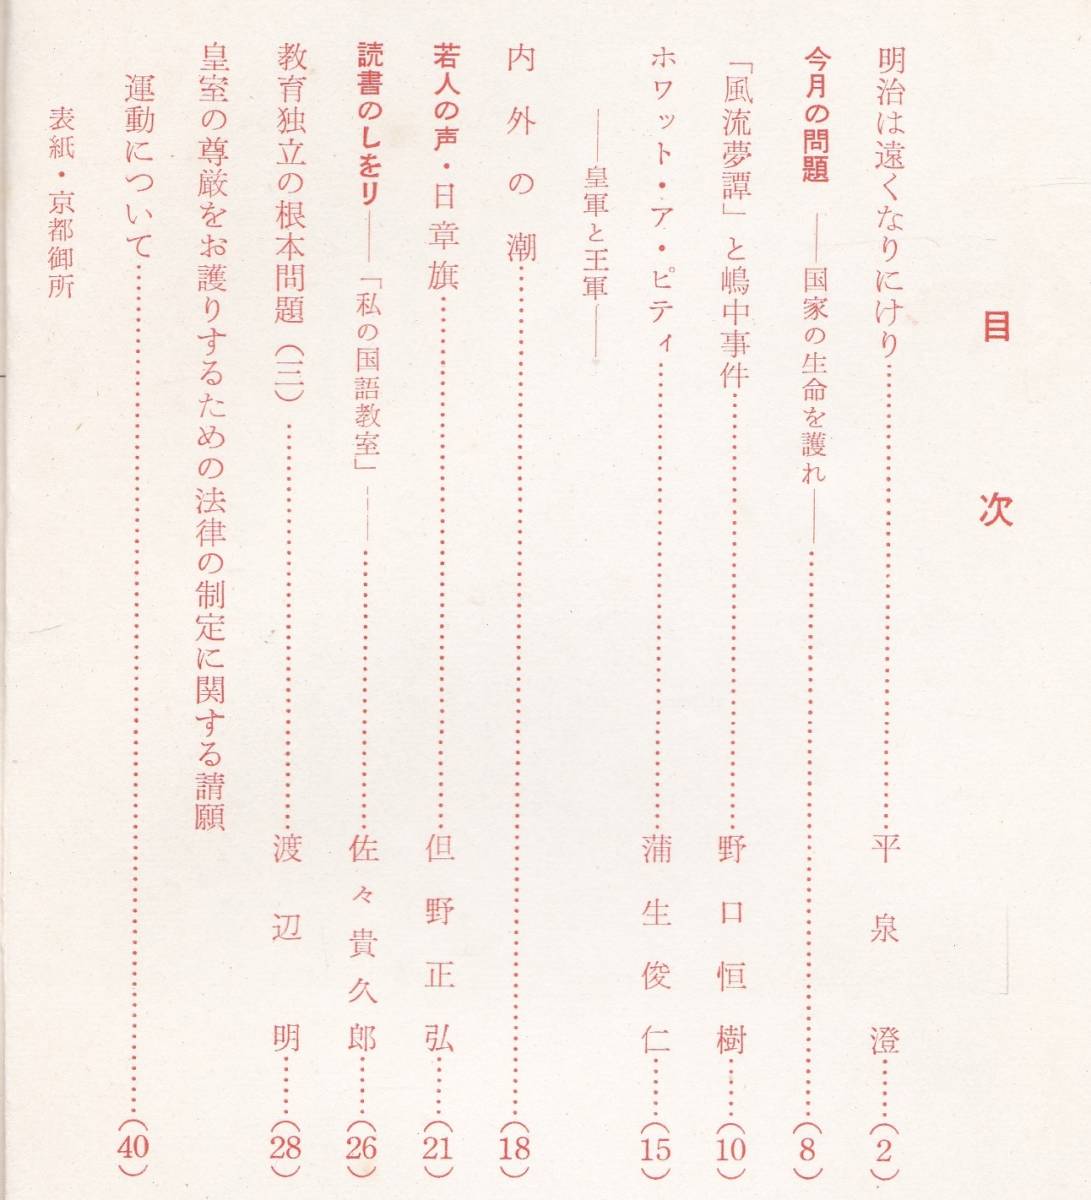 目次
明治は遠くなりにけり……平泉澄……(2)
今月の問題――国家の生命を護れ――……(8)
「風流夢譚」と嶋中事件……野口恒樹……(10)
ホワット・ア・ピティ……蒲生俊仁……(15)
――皇軍と王軍――
内外の潮……(18)
若人の声・日章旗……但野正弘……(21)
読書のしをり――「私の国語教室」――……佐々貴久郎……(26)
教育独立の根本問題(三)……渡辺明……(28)
皇室の尊厳をお護りするための法律の制定に関する請願
運動について……(40)
表紙・京都御所